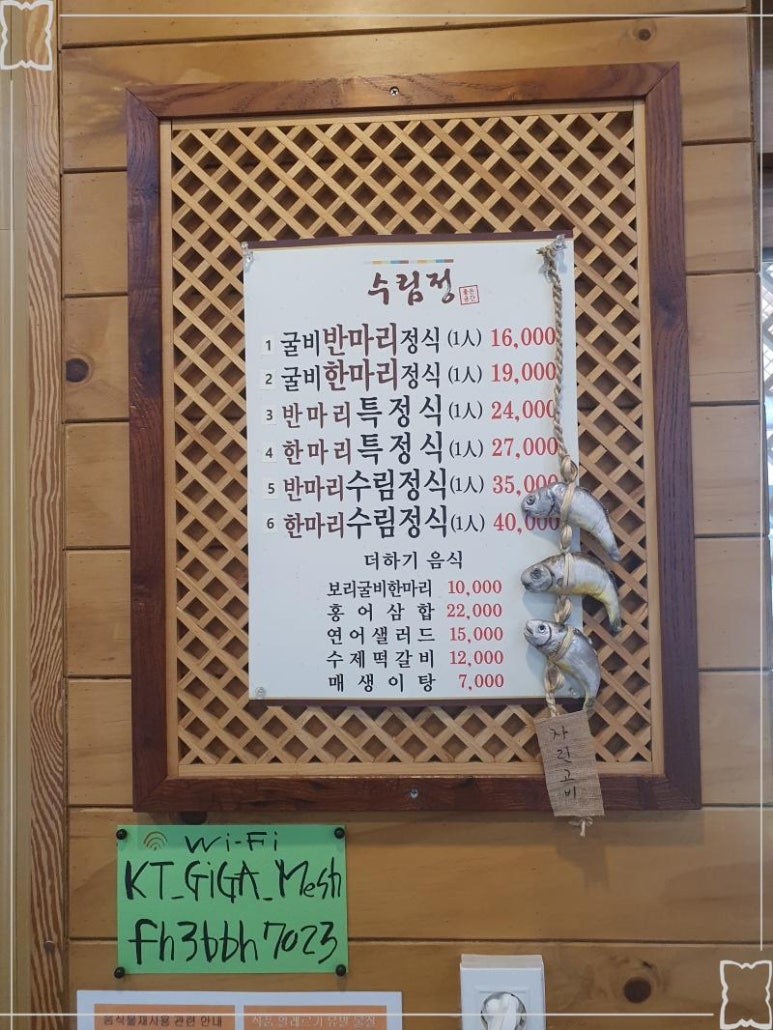 수림정
좋은
공간
1 굴비반마리정식 (1人) 16,000
2 굴비한마리정식 (1人) 19,000
3 반마리특정식 (1人) 24,000
4 한마리특정식 (1人) 27,000
5 반마리수림정식 (1人) 35,000
6 한마리수림정식 (1人) 40,000
더하기 음식
보리굴비한마리 10,000
홍어삼합 22,000
연어샐러드 15,000
수제떡갈비 12,000
매생이탕 7,000
자린고비
Wi-Fi
KT_GiGA_Mesh
fh3bbh7023
음식물재사용 관련 안내
식품 알레르기 유발 물질